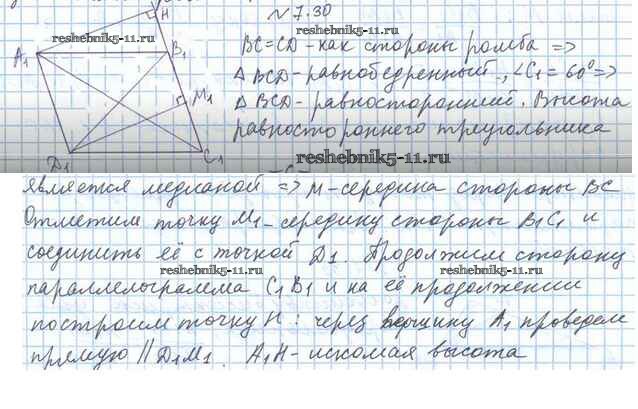 N 7.30
H
reshebnik5-11.ru
A1
B1
BC=CD - как стороны ромба =>
reshebnik5-11.ru
Δ BCD - равнобедренный, ∠C1 = 60° =>
M1
Δ BCD - равносторонний. Высота
равностороннего треугольника
D1
C1
reshebnik5-11.ru
является медианой => M - середина стороны BC
reshebnik5-11.ru
Отметим точку M1 - середину стороны B1C1 и
соединить её с точкой D1. Продолжим сторону
reshebnik5-11.ru
reshebnik5-11.ru
параллелограмма C1B1 и на её продолжении
построим точку H: через вершину A1 проведем
прямую || D1M1. A1H - искомая высота